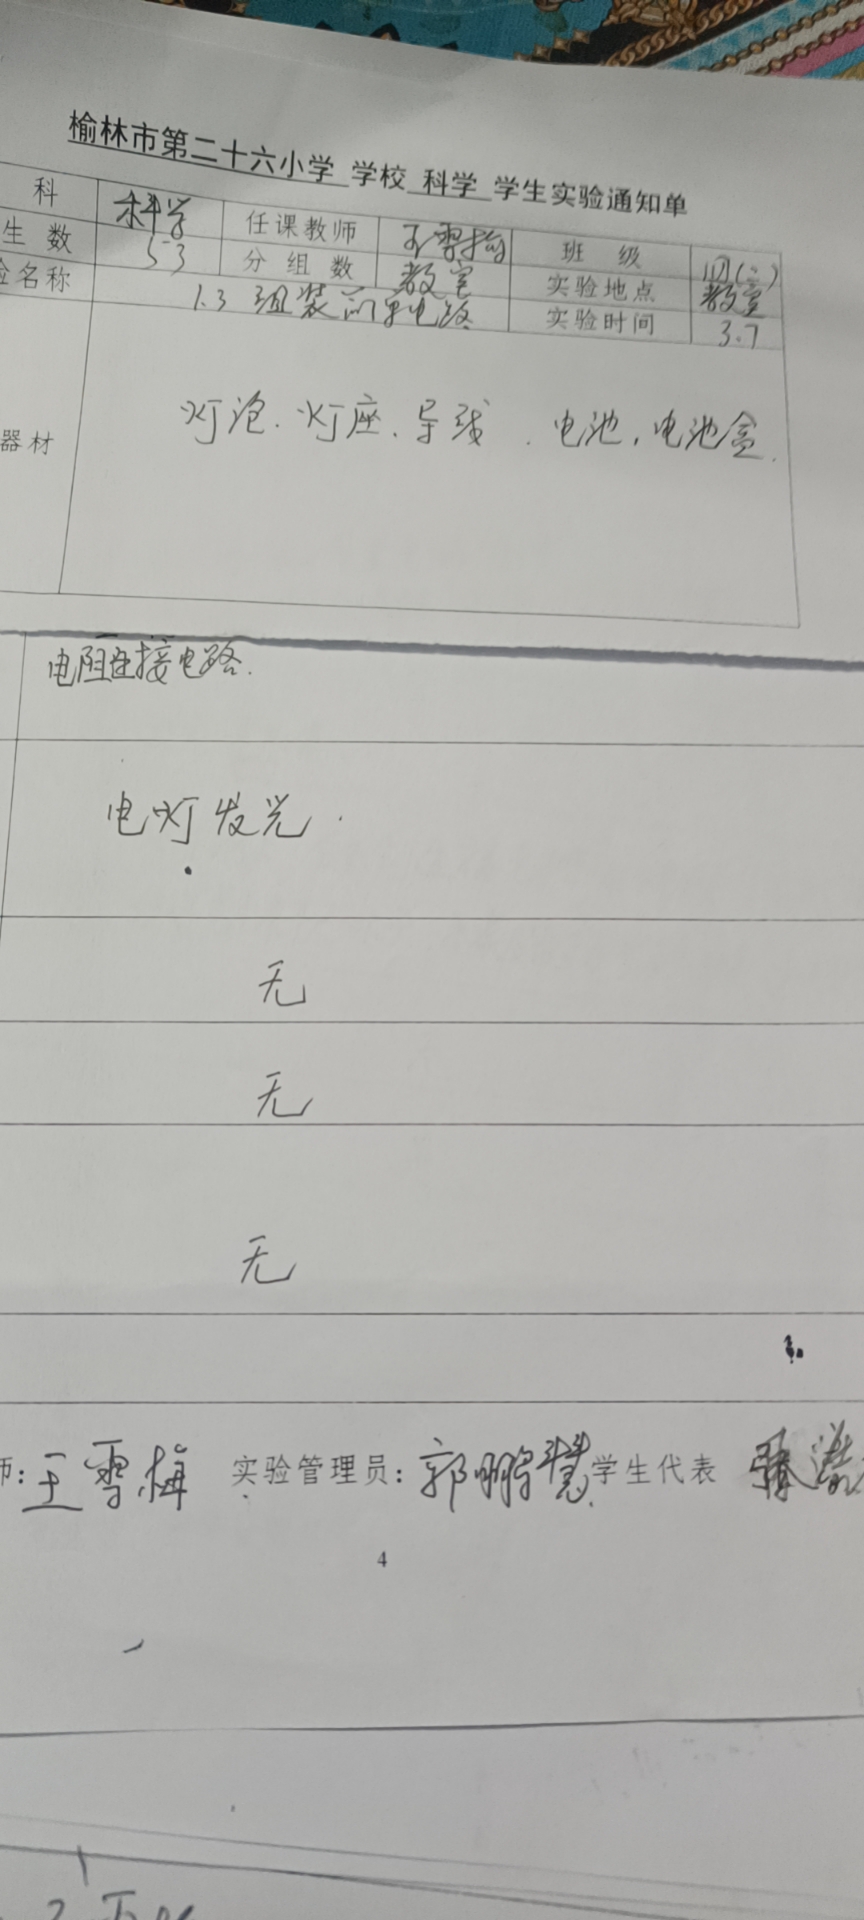 榆林市第二十六小学 学校 科学 学生实验通知单
科 科学 任课教师 王雪梅 班 级 四(二)
生 数 53 分 组 数 教室 实验地点 教室
验名称 1.3 组装简单电路 实验时间 3.7
器材 灯泡、灯座、导线、电池,电池盒.
电阻连接电路.
电灯发光.
无
无
无
师: 王雪梅 实验管理员: 郭鹏慧 学生代表 张
4